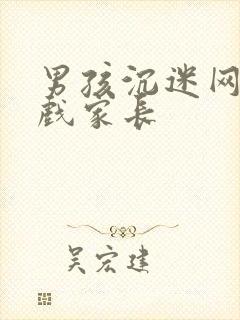 男孩沉迷网
戏家长
吴宏建